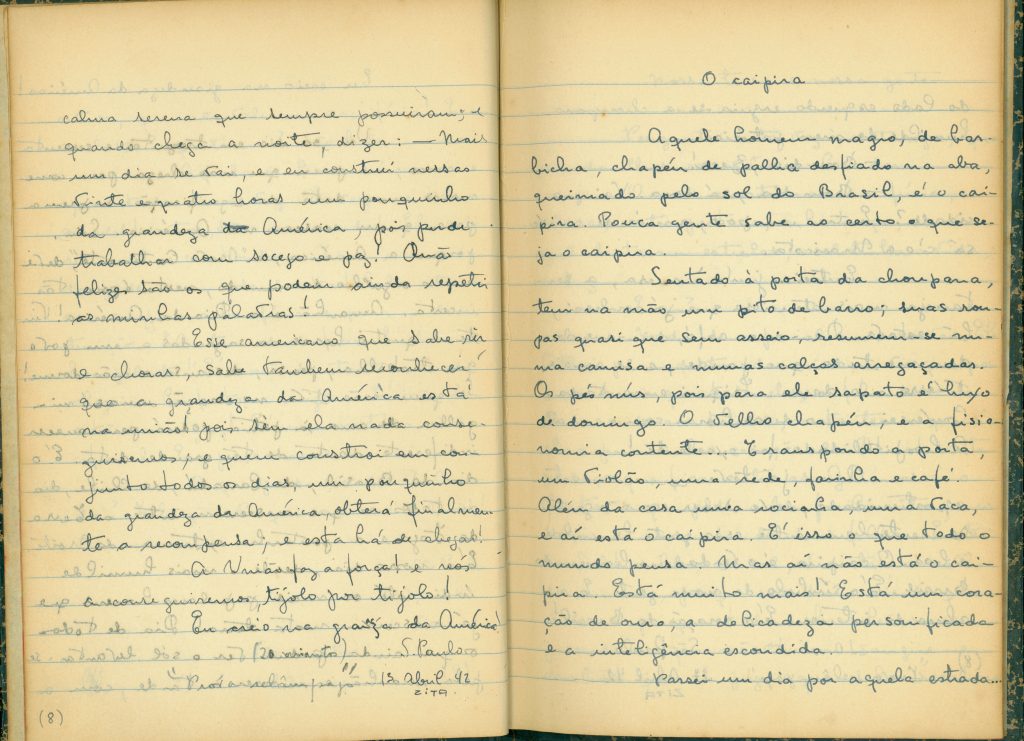 calma serena que sempre possuiram; e
quando chega a noite, dizer: — Mais
um dia se vai, e eu construi nessas
vinte e quatro horas um pouquinho
da grandeza da América, pois pude
trabalhar com socego e paz! Quão
felizes são os que podem ainda repetir
as minhas palavras!
Esse americano que sabe rir
e chorar, sabe tambem reconhecer
que a grandeza da América está
na união! pois sem ela nada conse-
guiremos, e quem constroi em con-
junto todos os dias, um pouquinho
da grandeza da América, obterá finalmen-
te a recompensa, e esta há de chegar!
A União faz a força! e nós
a conseguiremos, tijolo por tijolo!
Eu creio na grandeza da América
(20 minutos) S. Paulo
15 abril 42
ZITA
(8)
O caipira
Aquele homem magro, de bar-
bicha, chapéu de palha desfiado na aba,
queimado pelo sol do Brasil, é o cai-
pira. Pouca gente sabe ao certo o que se-
ja o caipira.
Sentado à porta da choupana,
tem na mão um pito de barro; suas rou-
pas quasi que sem asseio, resumem-se nu-
ma camisa e numas calças arregaçadas.
Os pés nús, pois para ele sapato é luxo
de domingo. O velho chapéu, e a fisio-
nomia contente... Transpondo a porta,
um violão, uma rede, farinha e café.
Além da casa uma rocinha, uma vaca,
e aí está o caipira. É isso o que todo o
mundo pensa. Mas aí não está o cai-
pira. Está muito mais! Está um cora-
ção de ouro, a delicadeza personificada
e a inteligência escondida.
Passei um dia por aquela estrada...